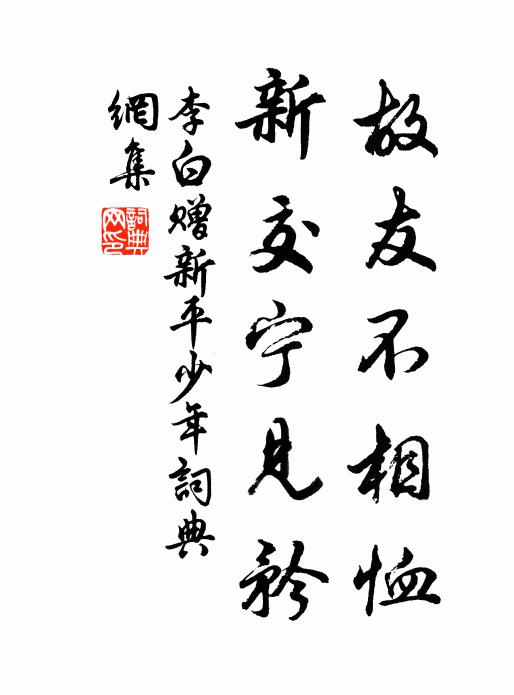 故友不相恤
新交宁見矜
李白赠新平少年詞典
網集
詞典
网印